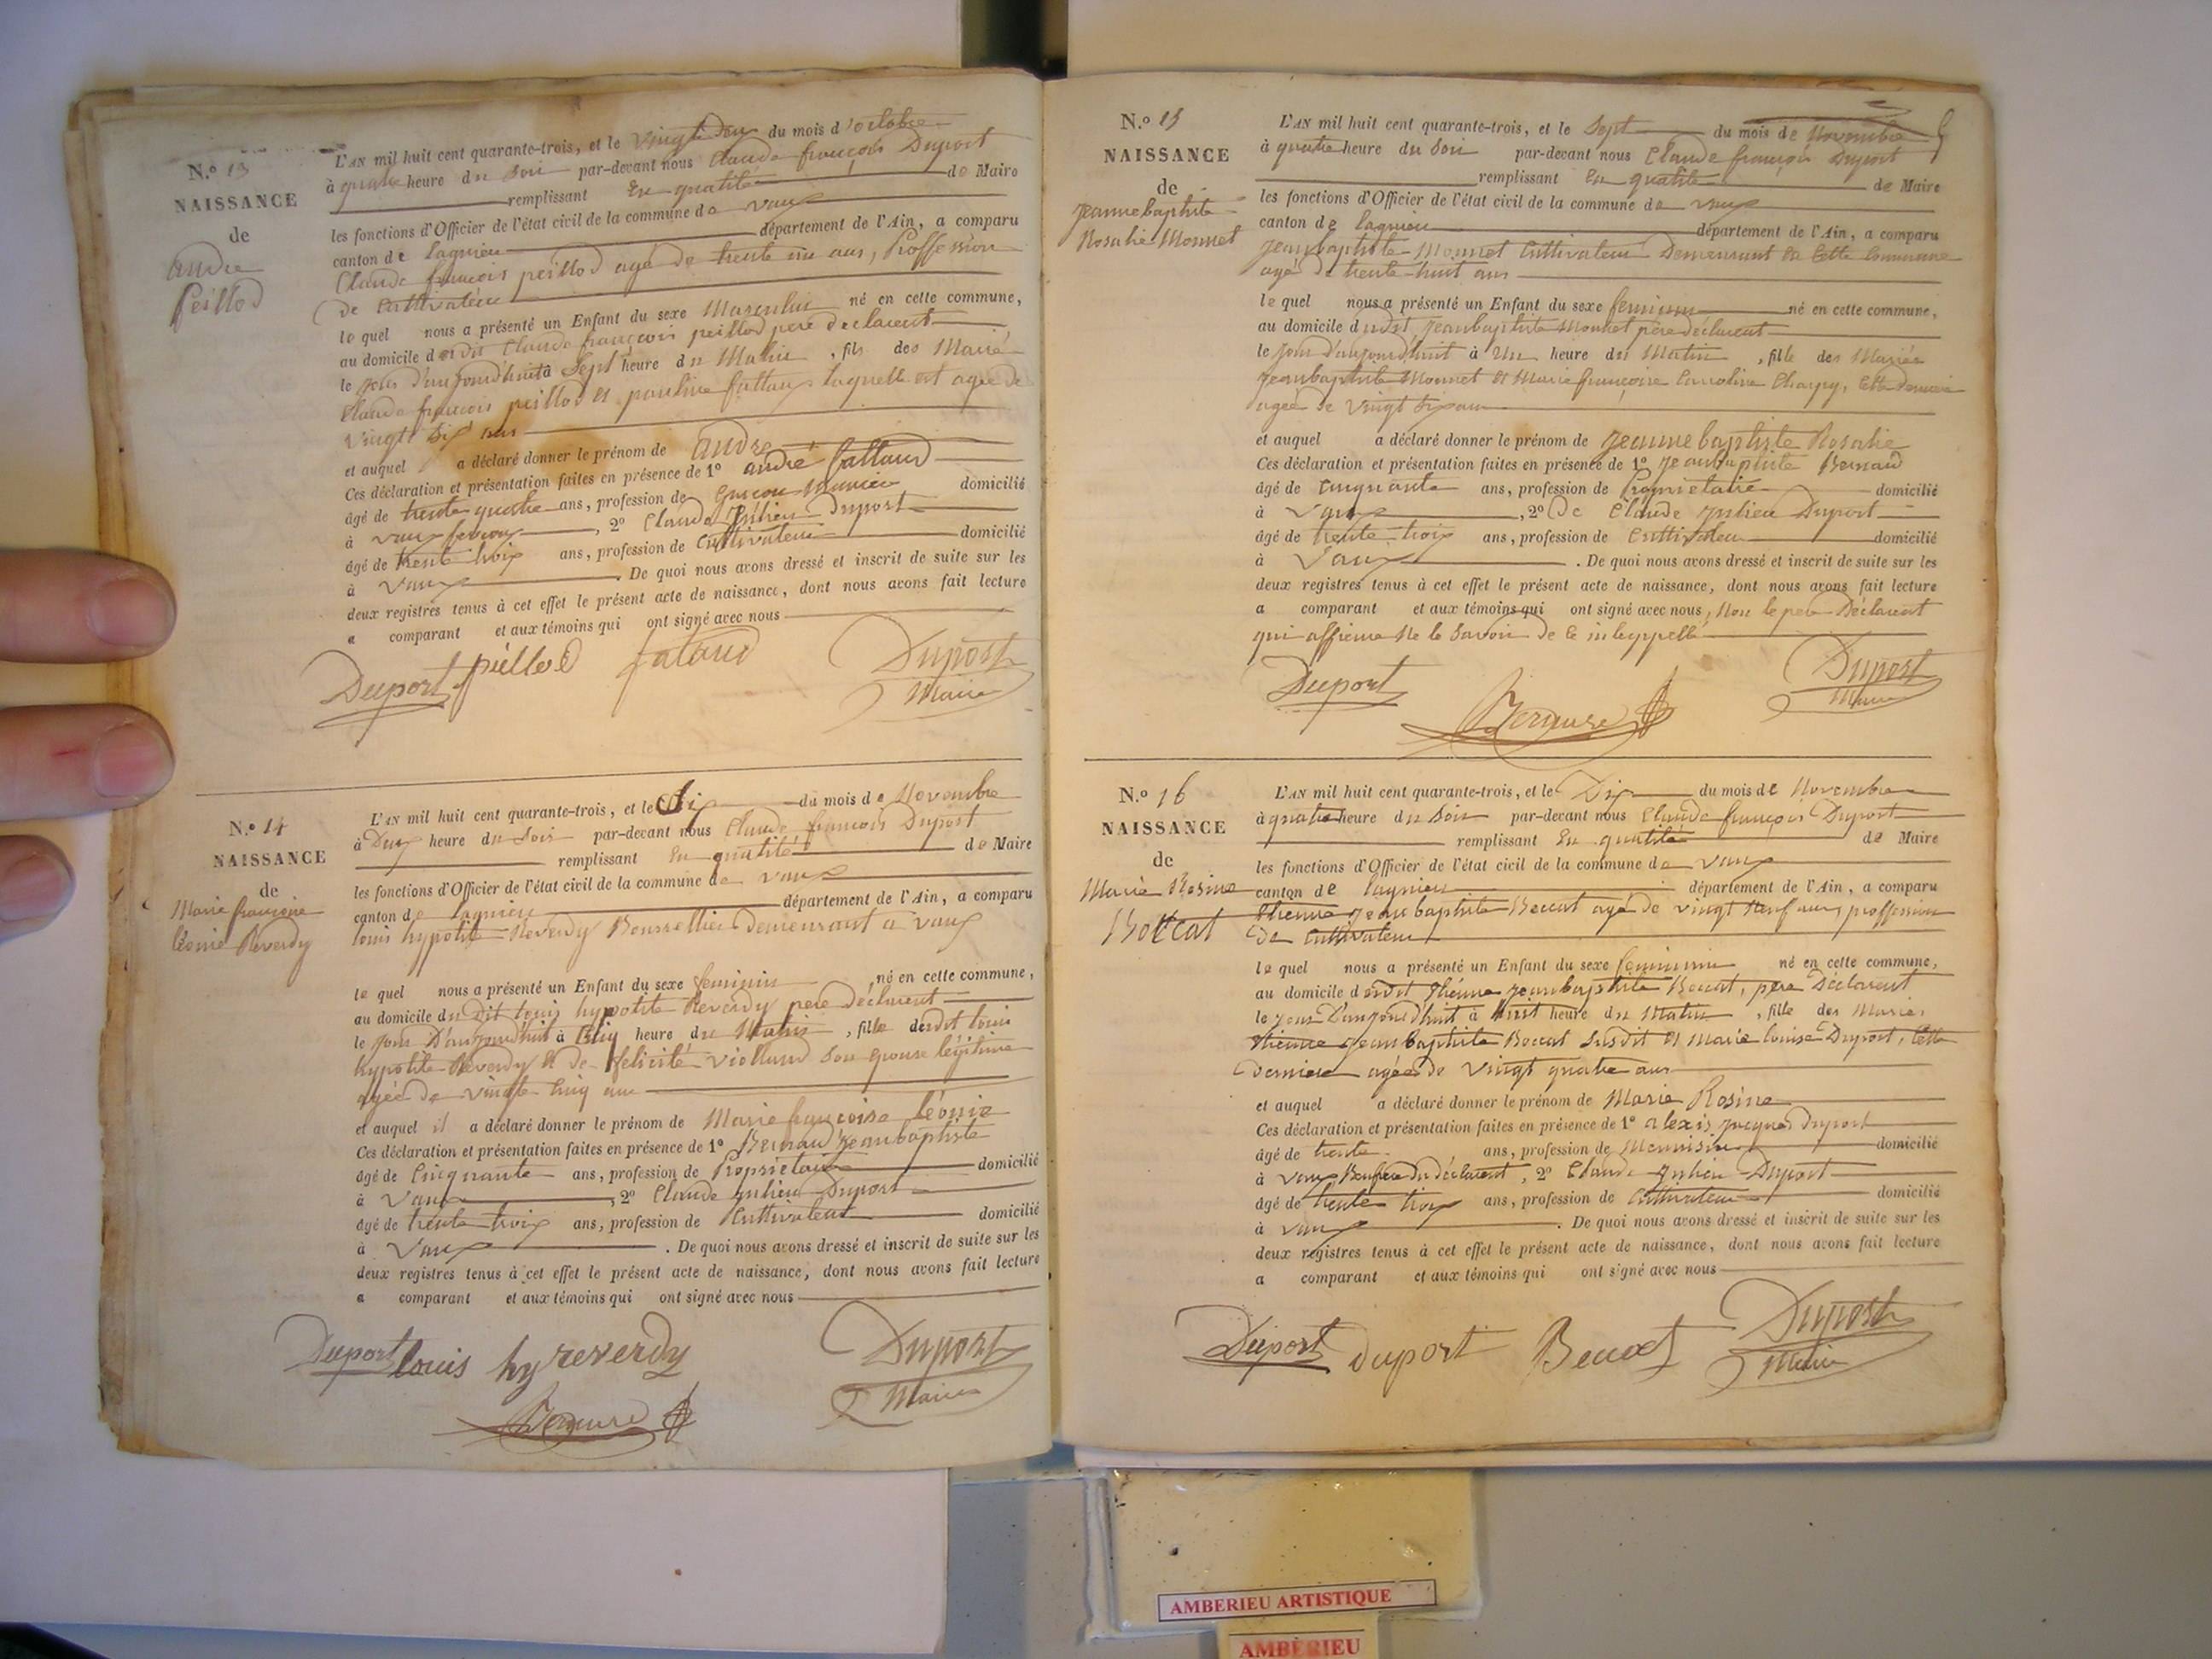 N.o 13
NAISSANCE
de
andré
Peillod
L'AN mil huit cent quarante-trois, et le vingt deux du mois d'octobre
à quatre heure du soir par-devant nous Claude françois Duport
remplissant En qualité de Maire
les fonctions d'Officier de l'état civil de la commune de vaux
canton de lagnieu département de l'Ain, a comparu
Claude françois peillod agé de trente ans, Proffession
de Cultivateur
le quel nous a présenté un Enfant du sexe Masculin né en cette commune,
au domicile dudit Claude françois peillod pere declarent
le jour d'aujourd'huit à Sept heure du Matin, fils des Marié
Claude françois peillod et pauline fattaux laquelle est agée de
vingt six ans
et auquel a déclaré donner le prénom de andré
Ces déclaration et présentation faites en présence de 1o andré fattaud
âgé de trente quatre ans, profession de domicilié
à vaux , 2o Claude Julien Duport
âgé de trente trois ans, profession de Cultivateur domicilié
à Vaux . De quoi nous avons dressé et inscrit de suite sur les
deux registres tenus à cet effet le présent acte de naissance, dont nous avons fait lecture
a comparant et aux témoins qui ont signé avec nous
Duport peillod fataud Duport
Maire
N.o 14
NAISSANCE
de
Marie françoise
léonie Reverdy
L'AN mil huit cent quarante-trois, et le Six du mois de Novembre
à Deux heure du Soir par-devant nous Claude françois Duport
remplissant En qualité de Maire
les fonctions d'Officier de l'état civil de la commune de vaux
canton de lagnieu département de l'Ain, a comparu
louis hypolite Reverdy Bourrellier Demeurant a vaux
le quel nous a présenté un Enfant du sexe feminin né en cette commune,
au domicile du Dit louis hypolite Reverdy pere déclarent
le jour D'aujourd'huit à Cinq heure du Matin, fille dudit louis
hypolite Reverdy et de félicité Violland Son epouse légitime
agée de vingt cinq ans
et auquel il a déclaré donner le prénom de Marie françoise léonie
Ces déclaration et présentation faites en présence de 1o Bernard Jean baptiste
âgé de Cinquante ans, profession de Propriétaire domicilié
à Vaux , 2o Claude Julien Duport
âgé de trente trois ans, profession de Cultivateur domicilié
à Vaux . De quoi nous avons dressé et inscrit de suite sur les
deux registres tenus à cet effet le présent acte de naissance, dont nous avons fait lecture
a comparant et aux témoins qui ont signé avec nous
Duport louis hy reverdy Duport
Maire
N.o 15
NAISSANCE
de
Jeanne baptiste
Rosalie Monnet
L'AN mil huit cent quarante-trois, et le Sept du mois de Novembre
à quatre heure du Soir par-devant nous Claude françois Duport
remplissant En qualité de Maire
les fonctions d'Officier de l'état civil de la commune de vaux
canton de lagnieu département de l'Ain, a comparu
Jean baptiste Monnet Cultivateur Demeurant en Cette Commune
agé de trente huit ans
le quel nous a présenté un Enfant du sexe feminin né en cette commune,
au domicile dudit Jean baptiste Monnet père déclarent
le jour d'aujourd'huit à Une heure du Matin, fille des Mariés
Jean baptiste Monnet et Marie françoise Caroline Charpy, Cette Derniere
agée de Vingt Six ans
et auquel a déclaré donner le prénom de Jeanne baptiste Rosalie
Ces déclaration et présentation faites en présence de 1o Jean baptiste Bernard
âgé de Cinquante ans, profession de Propriétaire domicilié
à Vaux , 2o de Claude Julien Duport
âgé de trente trois ans, profession de Cultivateur domicilié
à Vaux . De quoi nous avons dressé et inscrit de suite sur les
deux registres tenus à cet effet le présent acte de naissance, dont nous avons fait lecture
a comparant et aux témoins qui ont signé avec nous, Non le pere Déclarent
qui affirme Ne le Savoir de Ce
Duport Duport
Maire
N.o 16
NAISSANCE
de
Marie Rosine
Boccat
L'AN mil huit cent quarante-trois, et le Dix du mois de Novembre
à quatre heure du Soir par-devant nous Claude françois Duport
remplissant En qualité de Maire
les fonctions d'Officier de l'état civil de la commune de Vaux
canton de lagnieu département de l'Ain, a comparu
Etienne Jean baptiste Boccat agé de vingt Neuf ans, proffession
De Cultivateur
le quel nous a présenté un Enfant du sexe feminin né en cette commune,
au domicile dudit Etienne Jean baptiste Boccat, père Déclarent
le jour D'aujourd'huit à huit heure du Matin, fille des Mariés
Etienne Jean baptiste Boccat Susdit et Marie louise Duport, Cette
Derniere agée de Vingt quatre ans
et auquel a déclaré donner le prénom de Marie Rosine
Ces déclaration et présentation faites en présence de 1o alexis Jacques Duport
âgé de trente ans, profession de Menuisier domicilié
à vaux Beaufrere du déclarent, 2o Claude Julien Duport
âgé de trente trois ans, profession de Cultivateur domicilié
à vaux . De quoi nous avons dressé et inscrit de suite sur les
deux registres tenus à cet effet le présent acte de naissance, dont nous avons fait lecture
a comparant et aux témoins qui ont signé avec nous
Duport duport Boccat Duport
Maire
AMBERIEU ARTISTIQUE
AMBERIEU